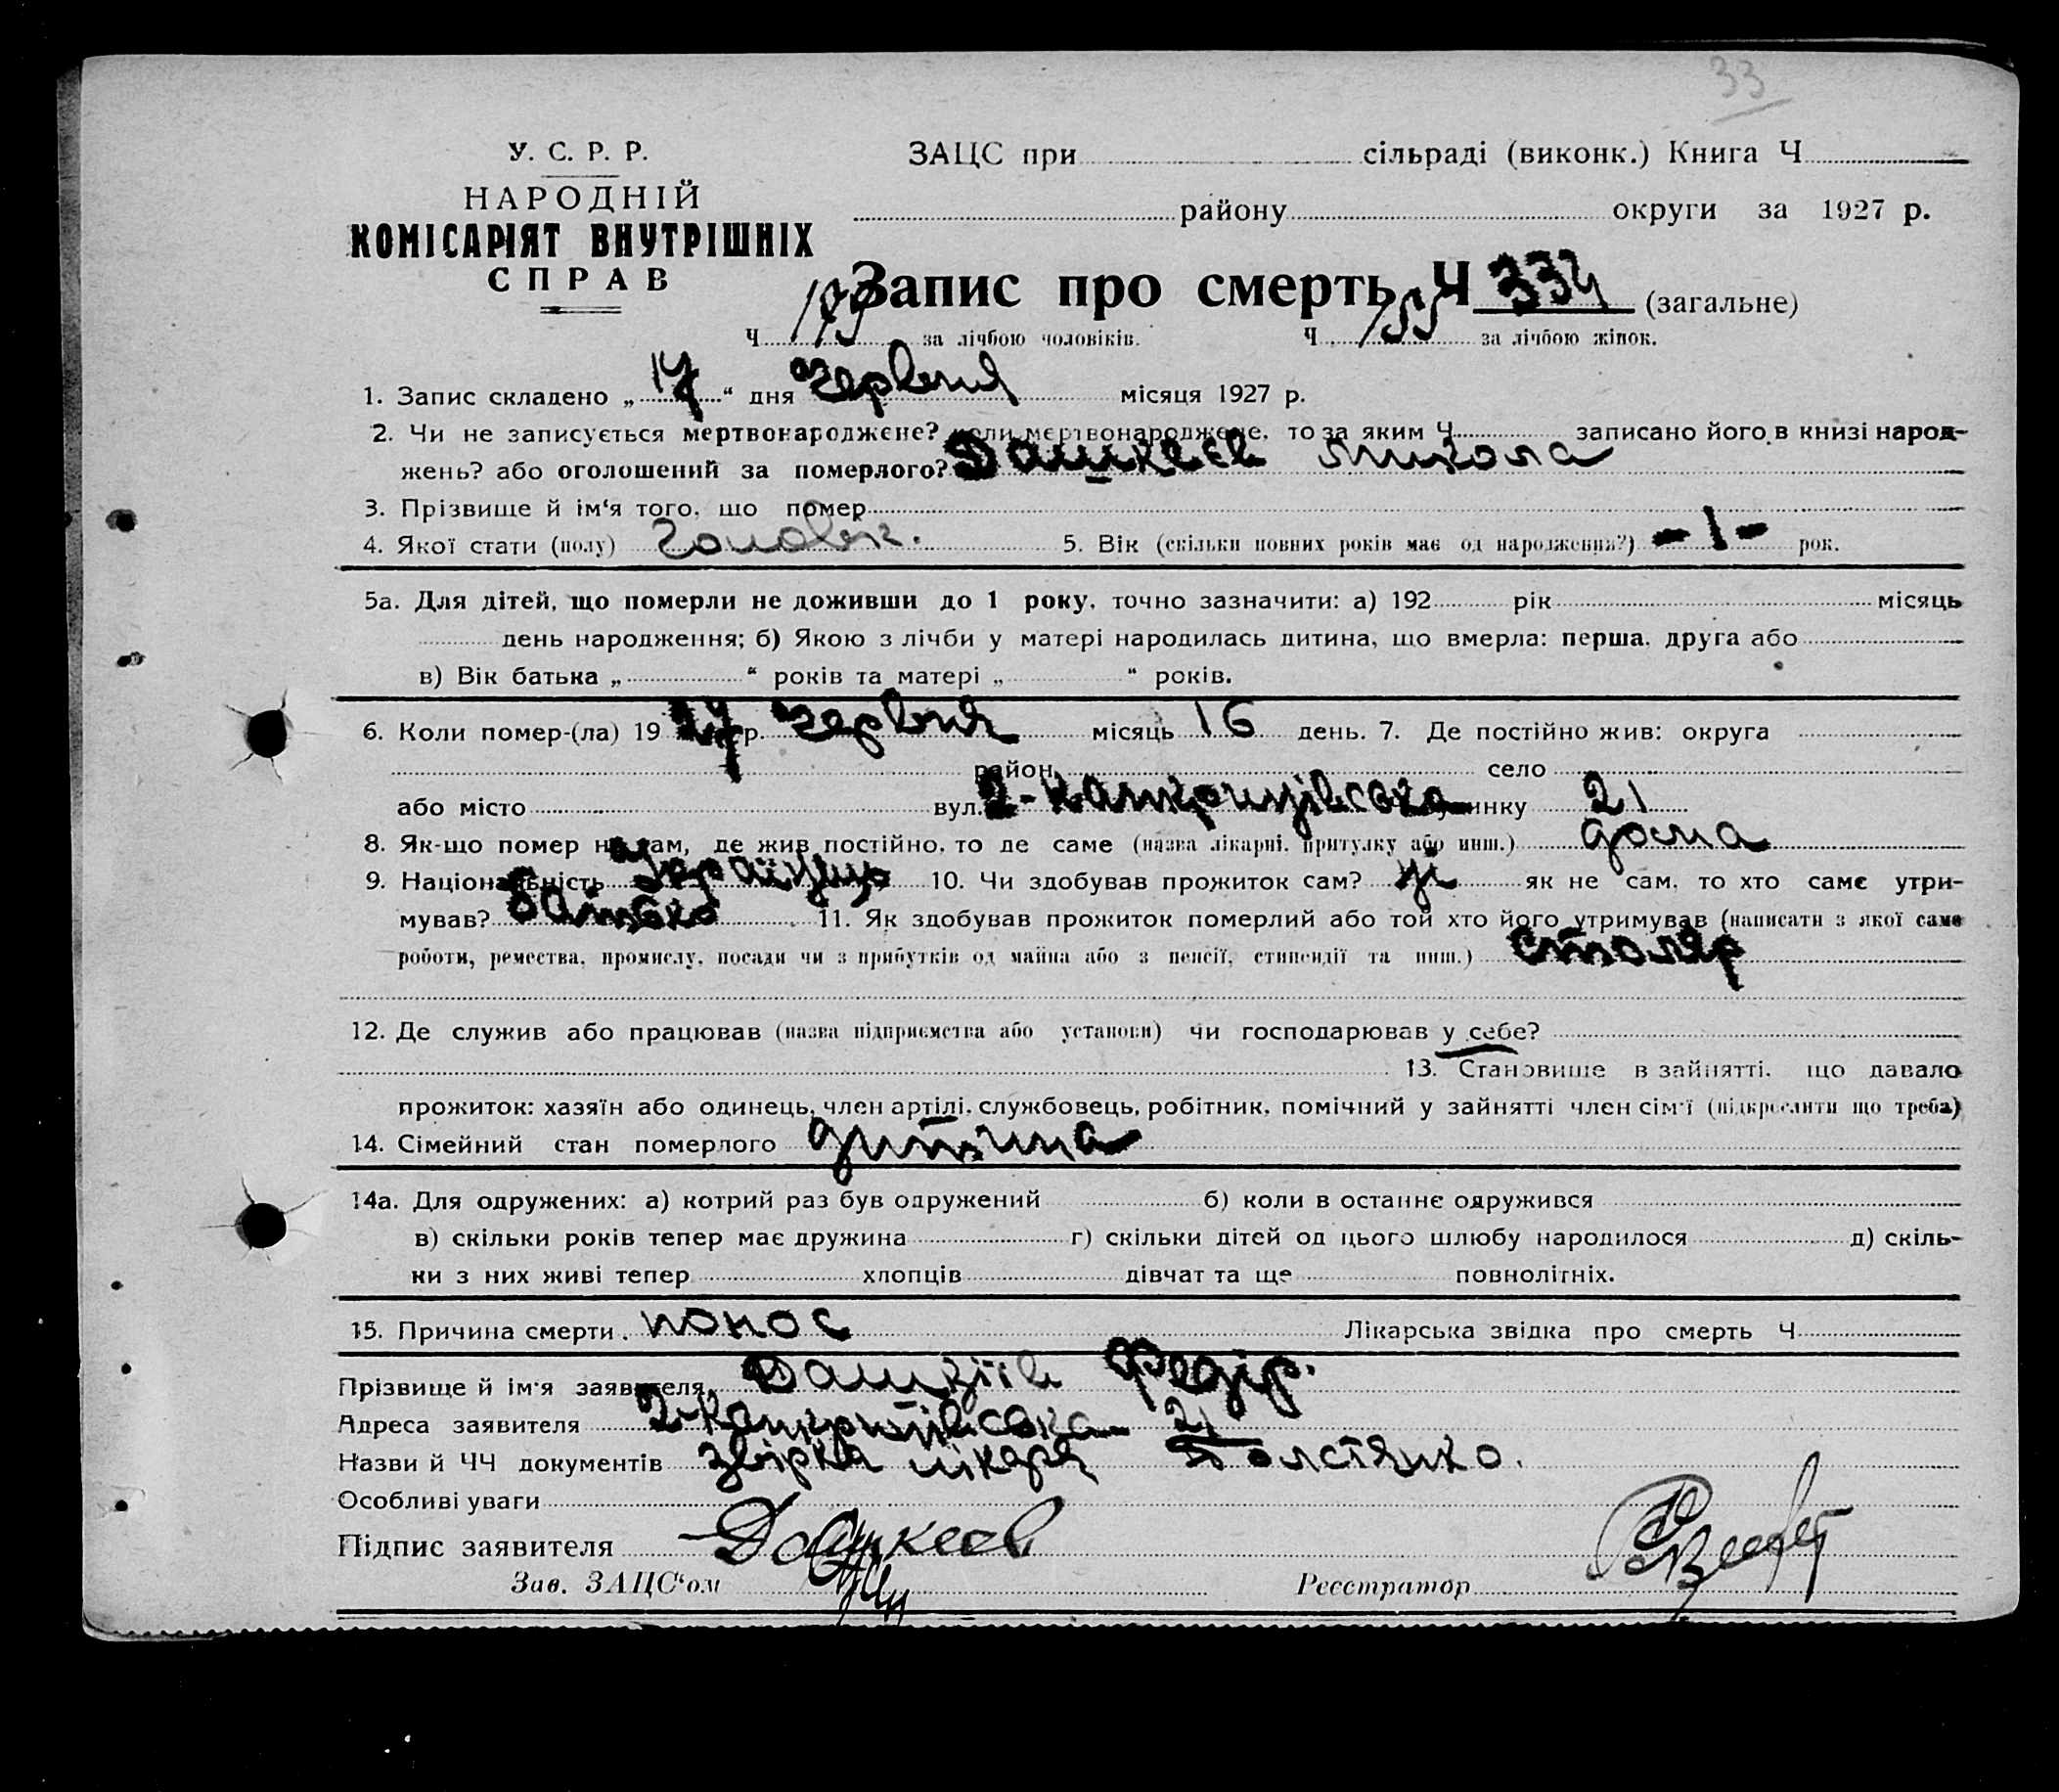 33
У. С. Р. Р.
НАРОДНІЙ
КОМІСАРІЯТ ВНУТРІШНІХ
СПРАВ
ЗАЦС при сільраді (виконк.) Книга Ч
району округи за 1927 р.
Запис про смерть Ч 334 (загальне)
Ч 179 за лічбою чоловіків. Ч 155 за лічбою жінок.
1. Запис складено „17“ дня Червня місяця 1927 р.
2. Чи не записується мертвонароджене? коли мертвонароджене, то за яким Ч. записано його в книзі народ-
жень? або оголошений за померлого? Дашкеєв Микола
3. Прізвище й ім‘я того, що помер
4. Якої стати (полу) Чоловік. 5. Вік (скільки повних років має од народження?) -1- рок.
5а. Для дітей, що померли не доживши до 1 року, точно зазначити: а) 192 рік місяць
день народження; б) Якою з лічби у матері народилась дитина, що вмерла: перша, друга або
в) Вік батька „ “ років та матері „ “ років.
6. Коли помер-(ла) 1927 р. Червня місяць 16 день. 7. Де постійно жив: округа
район село
або місто вул. 2-Камприцівська будинку 21
8. Як-що помер не там, де жив постійно, то де саме (назва лікарні, притулку або инш.) дома
9. Національність Українець 10. Чи здобував прожиток сам? Ні як не сам, то хто саме утри-
мував? батько 11. Як здобував прожиток померлий або той хто його утримував (написати з якої саме
роботи, ремества, промислу, посади чи з прибутків од майна або з пенсії, стипендії та инш.) столяр
12. Де служив або працював (назва підприємства або установи) чи господарював у себе?
13. Становище в зайнятті, що давало
прожиток: хазяїн або одинець, член артілі, службовець, робітник, помічний у зайнятті член сім‘ї (підкреслити що треба)
14. Сімейний стан померлого дитина
14а. Для одружених: а) котрий раз був одружений б) коли в останнє одружився
в) скільки років тепер має дружина г) скільки дітей од цього шлюбу народилося д) скіль-
ки з них живі тепер хлопців дівчат та ще повнолітніх.
15. Причина смерти. понос Лікарська звідка про смерть Ч
Прізвище й ім‘я заявителя Дашкіїв Федір.
Адреса заявителя 2-Камприцівська 21
Назви й ЧЧ документів звірка лікаря Толстянко.
Особливі уваги
Підпис заявителя Дашкеєв
Зав. ЗАЦС‘ом Реєстратор